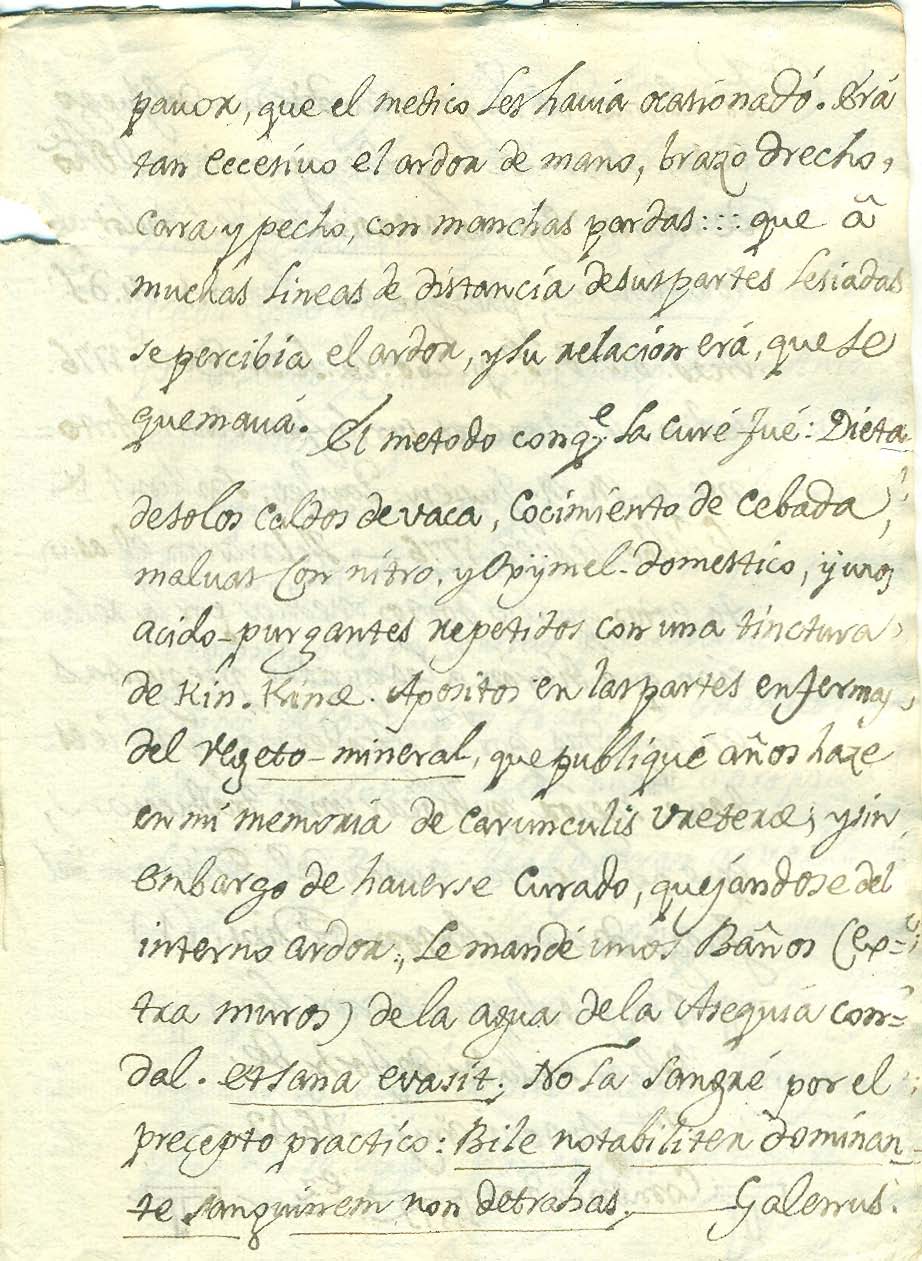 pavor, que el medico les havia ocasionadó. Erá
tan eccesivo el ardor de mano, brazo drecho,
cara y pecho, con manchas pardas::: que â
muchas lineas de distancia de sus partes lesiadas
se percibia el ardor, y su relacion erá, que se
quemavá. El metodo con q.e la curé fué: Dieta
de solos caldos de vaca, Cocimiento de Cebada,
malvas con nitro, y Oxÿmel-domestico, ÿ unos
acido-purgantes repetidos con una tinctura
de Kin. Kinæ. Apositos en las partes enfermas
del Vegeto-mineral, que publiqué años haze
en mi memoria de carunculis Ureteræ; y sin
embargo de haverse Currado, quejandose del
interno ardor, Le mandé unos Baños (ex=
tra muros) de la agua de la Asequia con=
dal. et sana evasit; No la sangré por el
precepto practico: Bile notabiliter dominan-
te sanguinem non detrahas. Galenus.